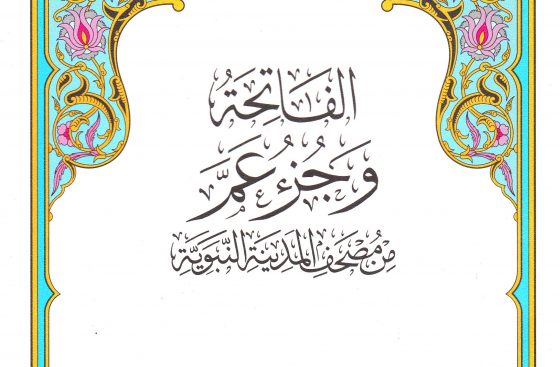 الفَاتِحَةُ
وَجُزْءُ عَمَّ
مِن مُصْحَفِ المَدِينَةِ النَّبَوِيَّةِ